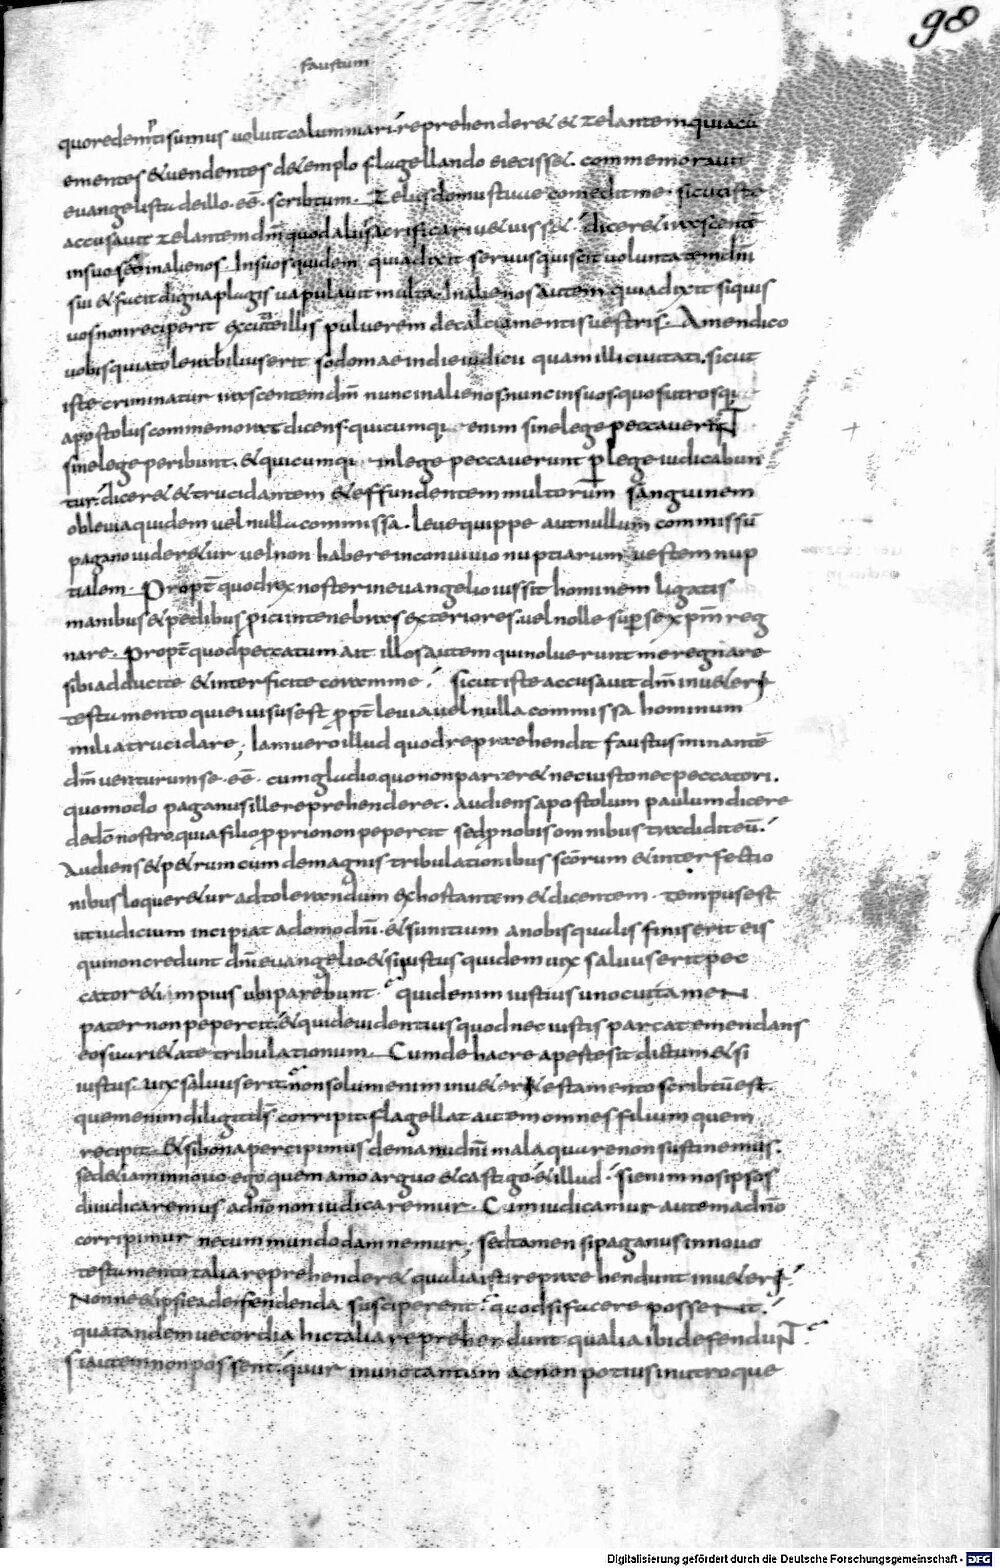 98
Faustum
quo redempti sumus voluit calumniari reprehenderet et zelantem quia cū
ementes et vendentes de templo flagellando eiecisset. commemoravit
evangelista de illo. eē. scribtum. Zelus domus tuae comedit me. sicut iste
accusavit zelantem dm̄ quod aliis sacrificari vetuisset. diceret irascentē
in suos et in alienos. In suos quidem quia dixit servus qui scit voluntatem dn̄i
sui et facit digna plagis vapulavit multa. In alienos autem quia dixit si quis
vos non receperit excutite illis pulverem de calciamentis vestris. Amen dico
vobis quia tolerabilius erit sodomae in die iudicii quam illi civitati. sicut
iste criminatur irascentem dm̄ nunc in alienos nunc in suos quos utrosq;
apostolus commemorat dicens quicumq; enim sine lege peccaverunt
sine lege peribunt. et quicumq; in lege peccaverunt p lege iudicabun
tur. diceret et trucidantem et effundentem multorum sanguinem
ob levia quidem vel nulla commissa. leve quippe aut nullum commissū
pagano videretur vel non habere in convivio nuptiarum vestem nup
tialem. Propt quod rex noster in evangelio iussit hominem ligatis
manibus et pedibus proici in tenebras exteriores. vel nolle super se xpm̄ reg
nare. Propt quod peccatum ait illos autem qui noluerunt me regnare
sibi adducite et interficite coram me; sicut iste accusavit dm̄ in veteri
testamento qui ei visus est propt levia vel nulla commissa hominum
milia trucidare; Iam vero illud quod repraehendit faustus minantē
dm̄ venturum se. eē. cum gladio quo non parceret nec iusto nec peccatori.
quomodo paganus ille reprehenderet. audiens apostolum paulum dicere
de dō nostro. quia filio proprio non pepercit sed p nobis omnibus tradidit eū.
Audiens et petrum cum de magnis tribulationibus scōrum et interfectio
nibus loqueretur ad tolerandum exhortantem et dicentem. tempus est
ut iudicium incipiat a domo dn̄i. et si initium a nobis qualis finis erit eis
qui non credunt dn̄i evangelio. et si iustus quidem vix salvus erit pec
cator et impius ubi parebunt. quid enim iustius uno cui tamen
pater non pepercit. et quid evidentius quod nec iustis parcat emendans
eos varietate tribulationum. Cum de hac re aperte sit dictum et si
iustus vix salvus erit. non solum enim in veteri testamento scribtū est.
quem enim diligit ds̄ corripit. flagellat autem omnes filium quem
recipit. Et si bona percipimus de manu dn̄i mala quare non sustinemus.
sed etiam in novo. ego quem amo arguo et castigo. et illud. si enim nos ipsos
diiudicaremus a dn̄o non iudicaremur. Cum iudicamur autem a dn̄o
corripimur ne cum mundo damnemur; sed tamen si paganus in novo
testamento talia reprehenderet qualia isti repraehendunt in veteri
Nonne et ipsi ea defendenda susciperent. quod si facere possent.
quae tandem vecordia hic talia reprehendunt qualia ibi defendunt
Si autem non possent. quur in uno tantum ac non potius in utroque
Digitalisierung gefördert durch die Deutsche Forschungsgemeinschaft - DFG